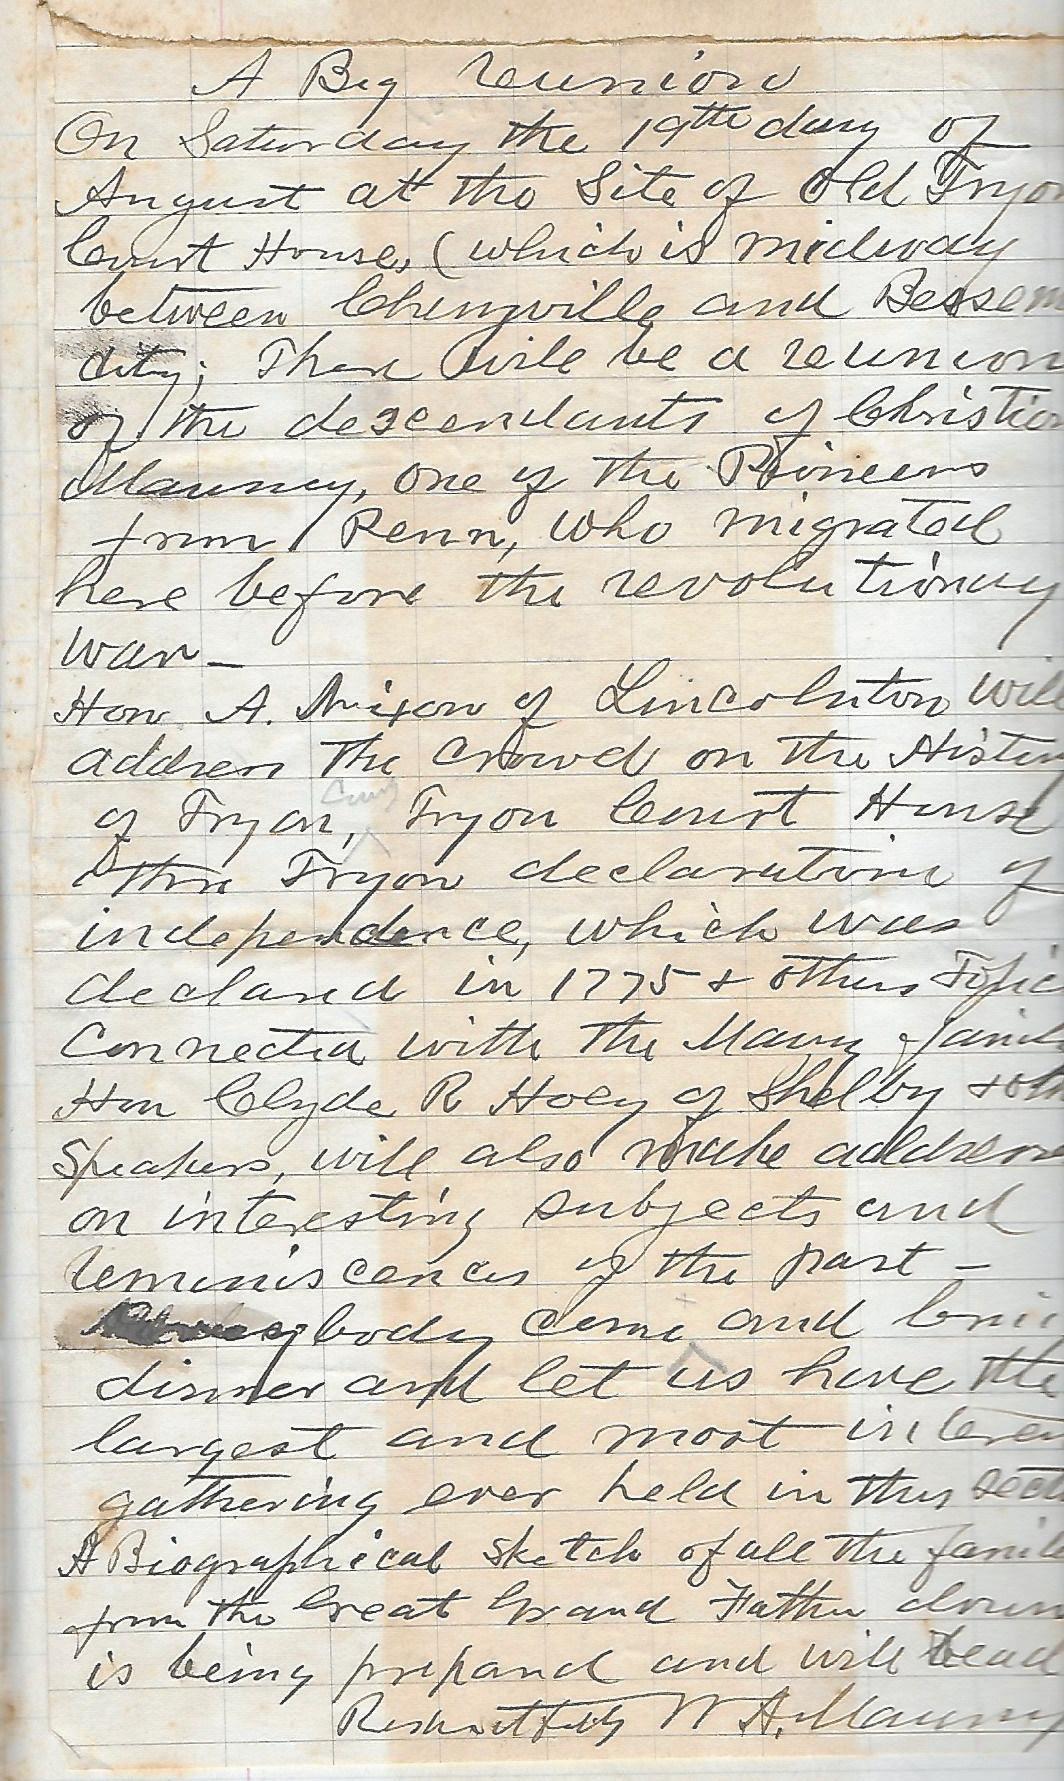 A Big reunion
On Saturday the 19th day of
August at the Site of Old Tryo
Court House, (which is midway
between Cherryville and Bessem
City; There will be a reunion
of the descendants of Christian
Mauney, one of the Pioneers
from Penn, who migrated
here before the revolutionary
war —
Hon A. Nixon of Lincolnton will
address the crowd on the Histor
Cunty
of Tryon, Tryon Court House
the Tryon declaration of
independence, which was
declared in 1775 & others Topic
Connected with the Mauny famil
Hon Clyde R Hoey of Shelby & oth
Speakers, will also make addresse
on interesting subjects and
reminiscences of the past —
body come and brin
dinner and let us have the
largest and most interes
gathering ever held in this secti
A Biographical Sketch of all the famile
from the Great Grand Father down
is being prepared and will read
Respectfully W A. Mauney